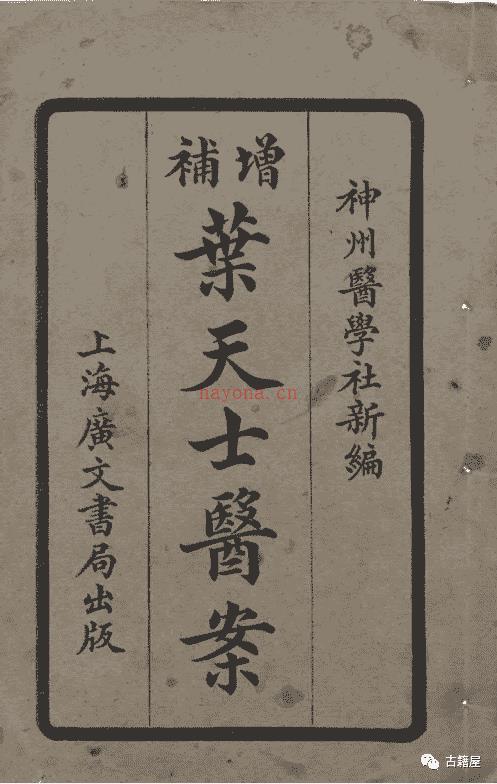 神州醫學社新編
增補
葉天士醫案
上海廣文書局出版
hayona.cn
古籍屋